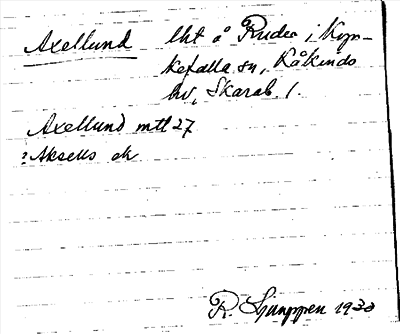 Axellund lht å Ruder i Kyrkefalla sn, Kåkinds
hd, Skarab. l.
Axellund mtl 27
? Aksells ek
R. Ljunggren 1930